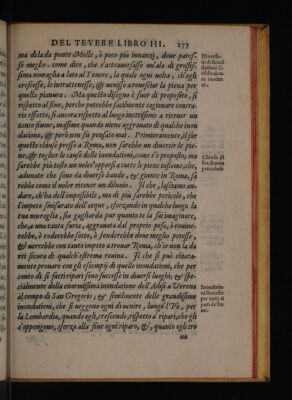 DEL TEVERE LIBRO III. 277
ma di là da ponte Molle, ò poco più innanzi, doue pares-
se meglio: come dire, che s'attrauersasse un'ala di grossis-
sima muraglia a lato al Teuere, la quale ogni uolta, ch'egli
crescesse, lo intrattenesse, & uenisse a rouesciar la piena per
quella pianura. Ma questo disegno è fuor di proposito, sì
rispetto al fine, perche potrebbe facilmente cagionar contra-
rio effetto, sì ancora rispetto al luogo inettissimo a riceuer un
tanto fiume, massime quando uiene aggrauato di qualche inon
datione, & però non fu pensato mai. Primieramente, il far
queste chiuse presso a Roma, non sarebbe un diuertir le pie-
ne, & toglier le cause delle inondationi, come è'l proposito, ma
sarebbe più tosto un uoler'opporsi a tutte le piene insieme, che,
adunate che sono da diuerse bande, & giunte in Roma, sa
rebbe come il uoler ritener un diluuio. Il che, lasciamo an-
dare, ch'hà dell'impossibile, ma di più sarebbe pericolo, che
l'impeto smisurato dell'acque, sforzando in qualche luogo la
tua muraglia, sia gagliarda pur quanto te la sai imaginare,
che, a una tanta furia, aggrauata dal proprio peso, ò rouine-
rebbe, ò roderebbe sotto, ò fenderebbe doue meglio potesse,
& uerrebbe con tanto impeto a trouar Roma, ch'io non la da
rei sicura di qualch'estrema rouina. Il che si può chiara-
mente prouare con gli essempij di quelle inondationi, che per
conto di sì fatti ripari sono successe in diuersi luoghi, & spe-
cialmente della enormissima inondatione dell'Adisi a Verona
al tempo di San Gregorio, & similmente delle grandissime
inondationi, che si ueggono ogni dì uenire, lungo'l Pò, per
la Lombardia, quando egli, crescendo, rispetto a' ripari, che gli
s'oppongono, sforza alla fine ogni riparo, &, quanto egli tro
ua
Chiuse presso
sola Roma
pericolose
Inondationi
successe
per conto di
ripari